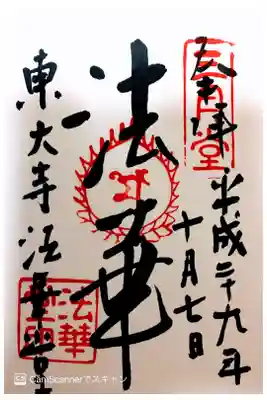 奉拝
平成二十九年
十月七日
三月堂
法華
東大寺法華堂
法華堂印
CamScannerでスキャン